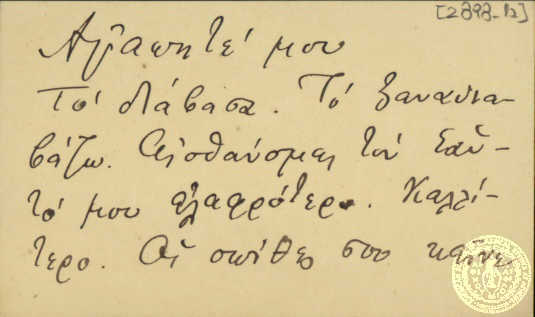 [2898-12]
Ἀγαπητέ μου
Τό διάβασα. Τό ξαναδια-
βάζω. Αἰσθάνομαι τόν ἑαυ-
τό μου ἐλαφρότερο. Καλλί-
τερο. Αἱ σπίθες σου καῖνε